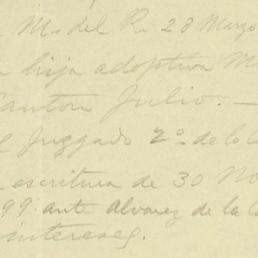 M. del R. 28 Marzo
hija adoptiva M
Canton Julio. —
Juzgado 2º de lo C
escritura de 30 No
99 ante Alvarez de la C
intereses.